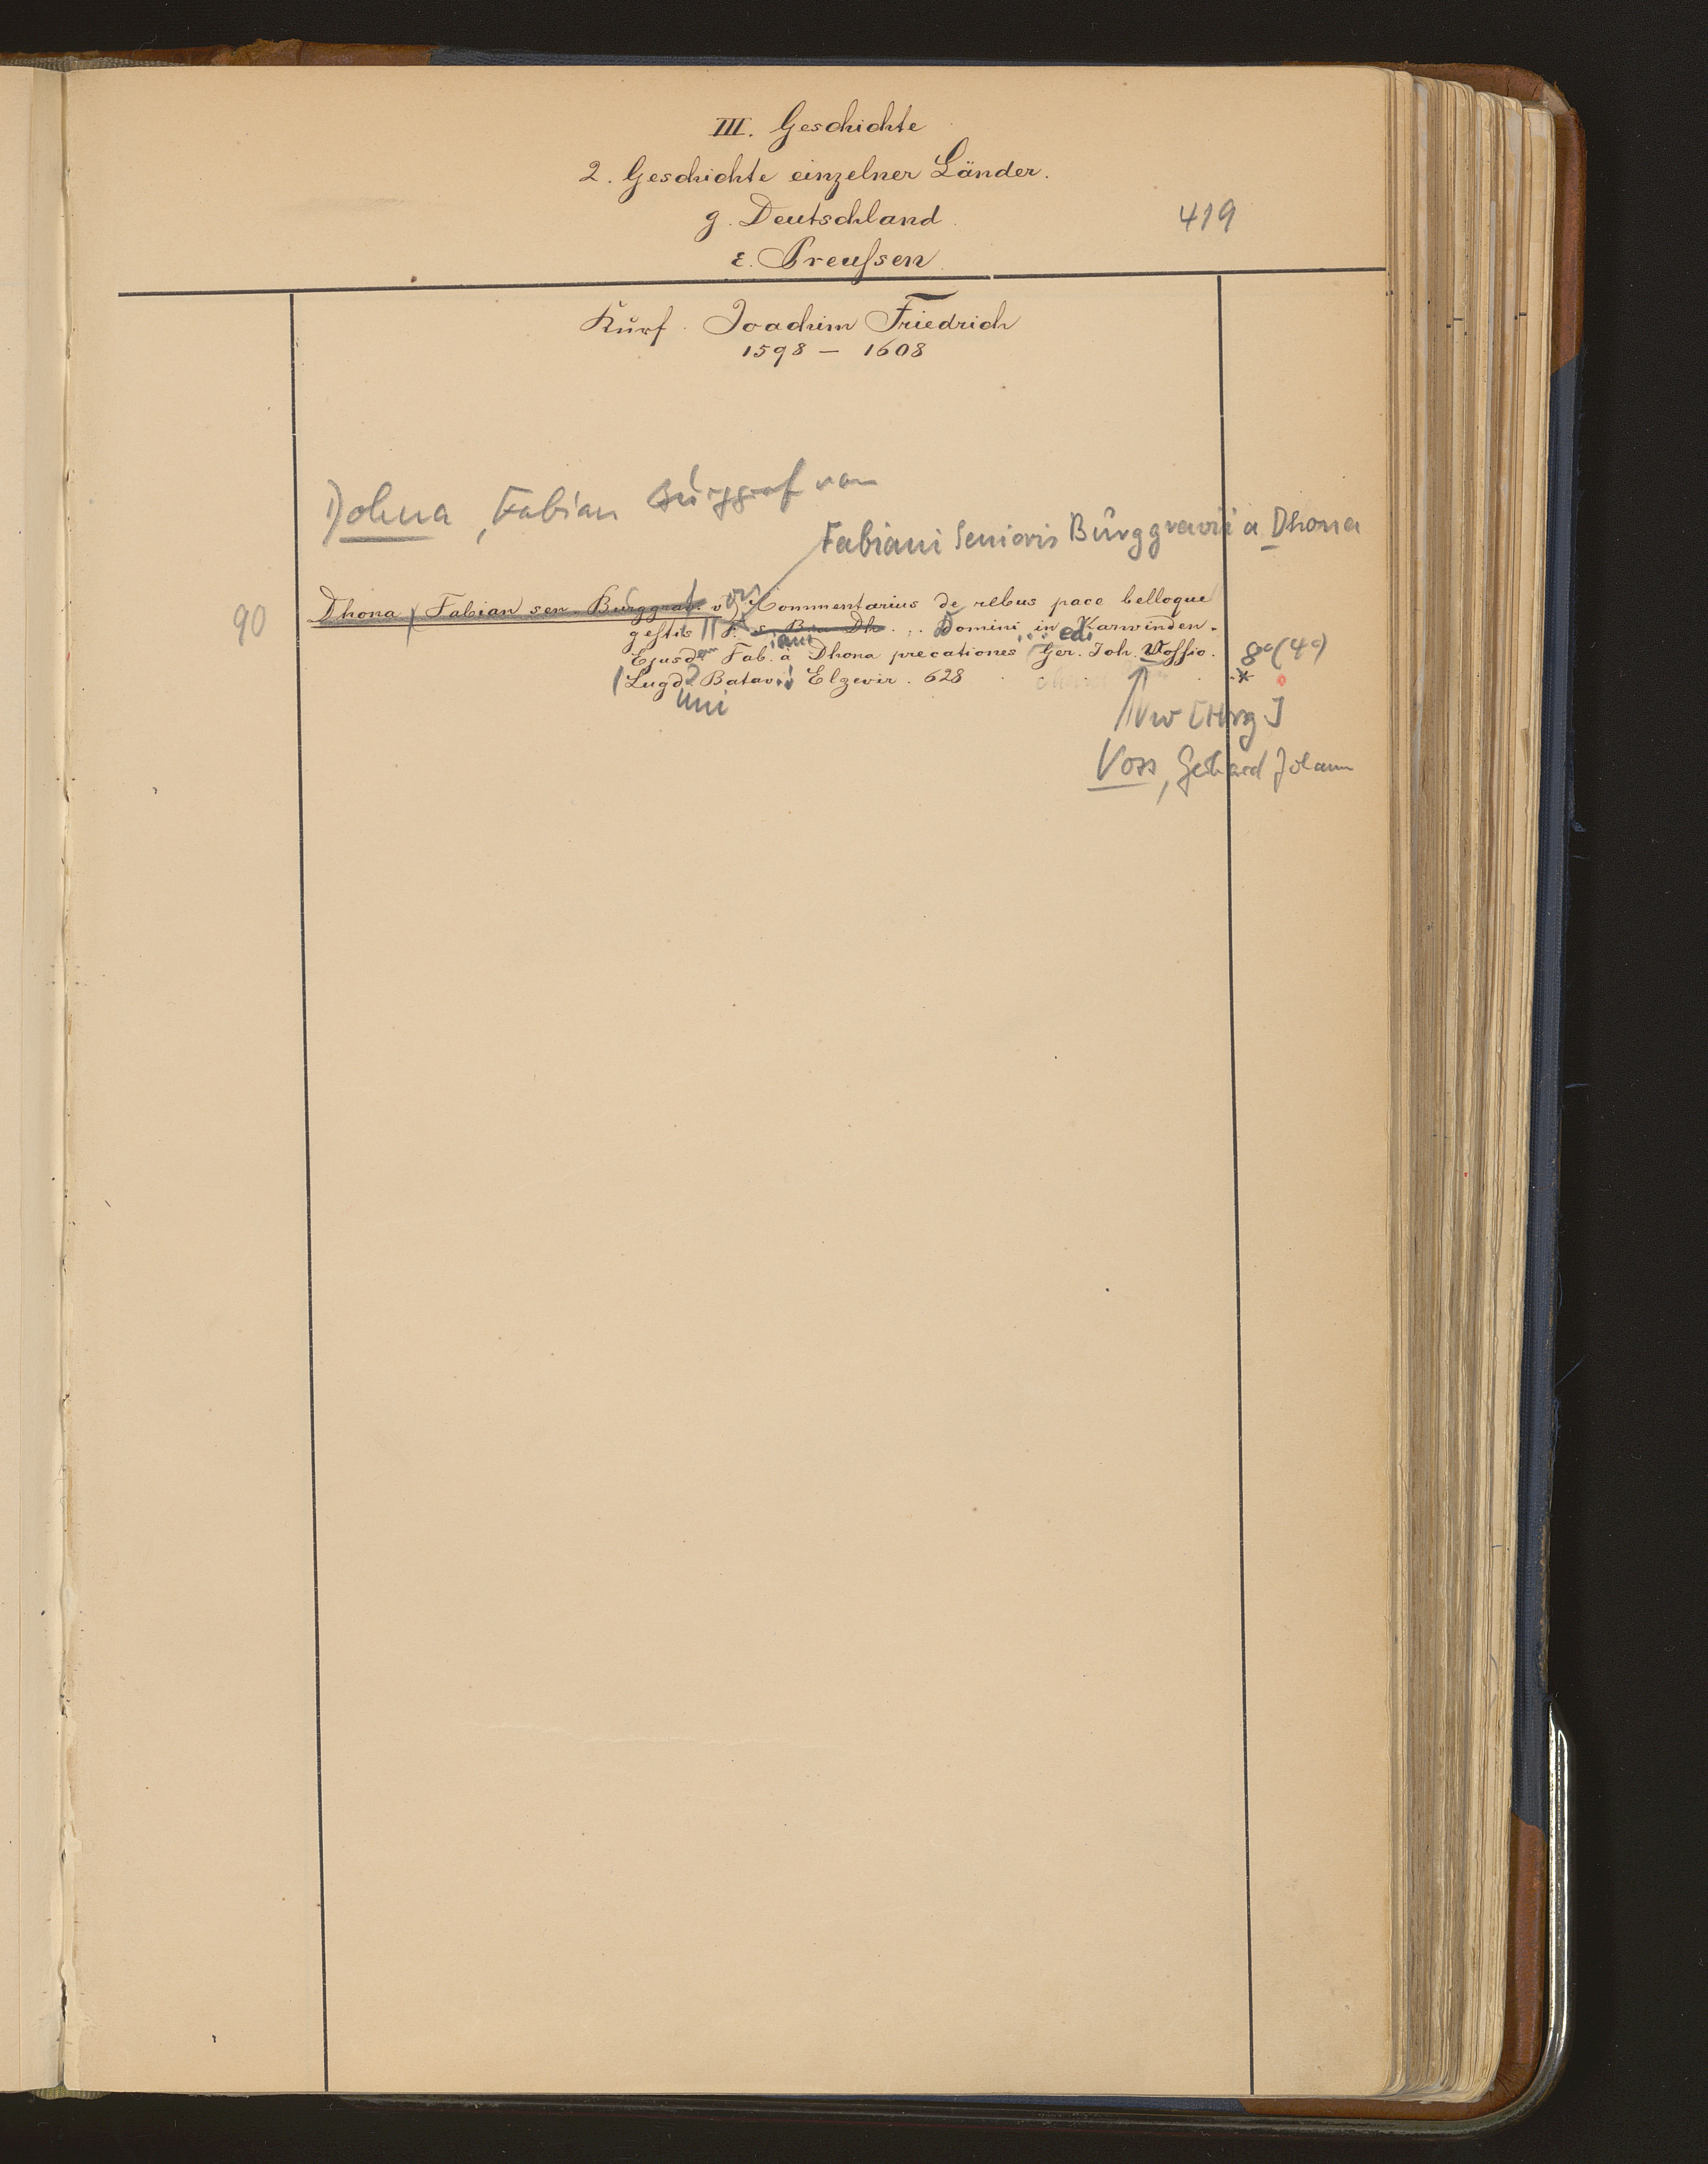 III. Geschichte
2. Geschichte einzelner Länder.
g. Deutschland.
419
ε. Preußsen.
Kurf. Joachim Friedrich
1598 – 1608
Dohna, Fabian Burggraf von
Fabiani Senioris Burggravii a Dhona
90
Dhona, Fabian sen. Burggraf. von Commentarius de rebus pace belloque
gestis F. s. B. a Dh. ... Domini in Karwinden.
Ejusdem Fab. iani a Dhona precationes ... edi Ger. Joh. Vossio. 8°(4°)
(Lugd. uni Batav. Elzevir. 628 *
Vw [Hrsg]
Voss, Gerhard Johann